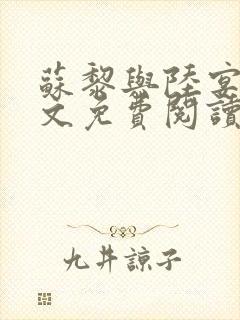 蘇黎與陸宴
文免費閱讀
九井諒子